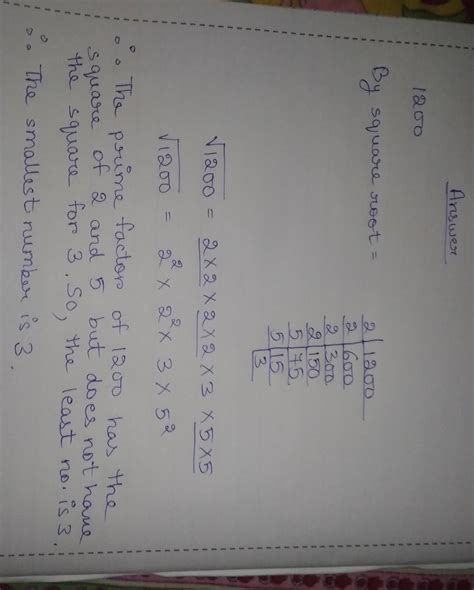 Answer
1200
By square root =
2 | 1200
2 | 600
2 | 300
2 | 150
5 | 75
5 | 15
3
√1200 = 2×2×2×2×3×5×5
√1200 = 2² × 2² × 3 × 5²
∴ The prime factor of 1200 has the
square of 2 and 5 but does not have
the square for 3. So, the least no. is 3.
∴ The smallest number is 3.